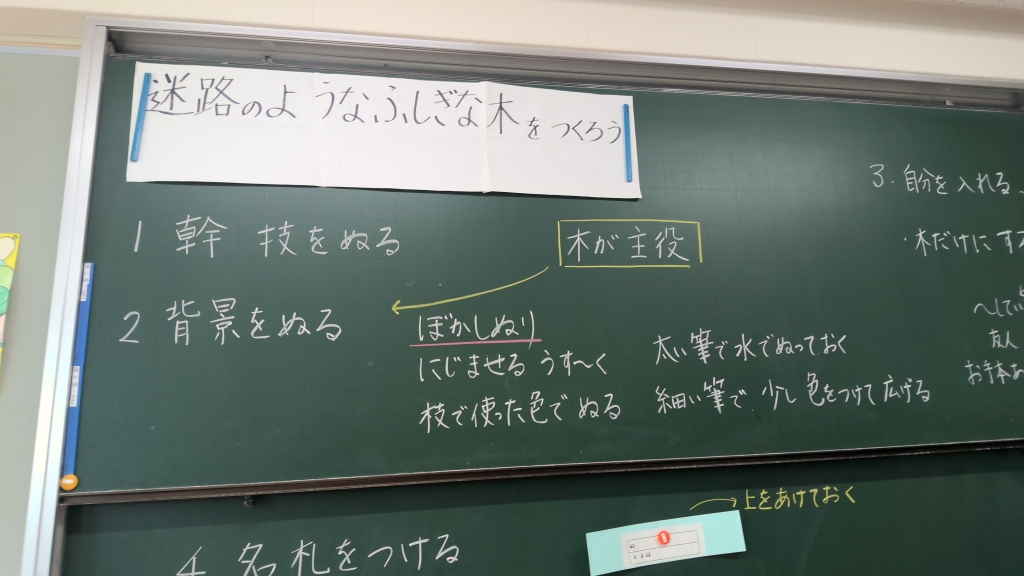 迷路のようなふしぎな木をつくろう
1 幹 技をぬる
木が主役
2 背景をぬる
ぼかしぬり
にじませる うす〜く
枝で使った色でぬる
太い筆で水でぬっておく
細い筆で少し色をつけて広げる
3.自分を入れる
・木だけにす
友人
お手本
4 名札をつける
→上をあけておく